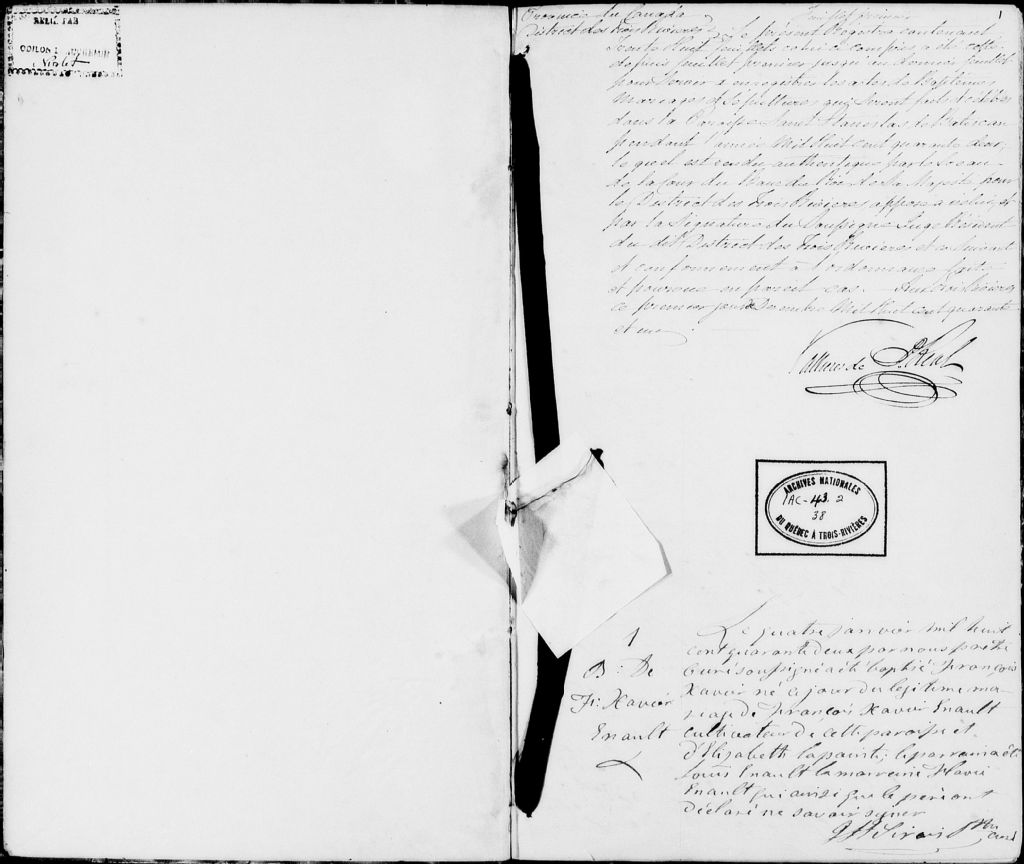 RELIE PAR
ODILON
Nicolet
Province du Canada
District des Trois Rivieres
feuillet premier
1
Le présent Registre contenant
Trente Huit feuillets celui ci compris, a été cotté
depuis feuillet premier jusqu'au dernier feuillet
pour servir à enregistrer les actes de Baptêmes
Mariages & Sépultures qui seront faits & célébrés
dans la Paroisse Saint Stanislas de Batiscan
pendant l'année Mil Huit cent quarante deux,
lequel est rendu authentique par le Sceau
de la Cour du Banc du Roi de Sa Majesté, pour
le District des Trois Rivieres apposé à icelui, et
par la signature du Soussigné Juge Résident
du dit District des Trois Rivieres et ce suivant
et conformement à l'ordonnance faite
et pourvue en pareil cas. Aux Trois Rivieres
ce premier jour de Decembre Mil Huit cent quarante
et un
Vallieres de St Real
ARCHIVES NATIONALES
IAC-43.2
38
DU QUÉBEC À TROIS-RIVIÈRES
1
B: De
Fs: Xavier
Enault
Le quatre janvier mil huit
cent quarante deux par nous prêtre
Curé soussigné a été baptisé François
Xavier né ce jour du légitime ma-
riage de François Xavier Enault
cultivateur de cette paroisse et
d'Elizabeth Lapointe; le parrain a été
Louis Enault la marreine Flavie
Enault qui ainsi que le père ont
déclaré ne savoir signer
Sirois Ptre
Curé